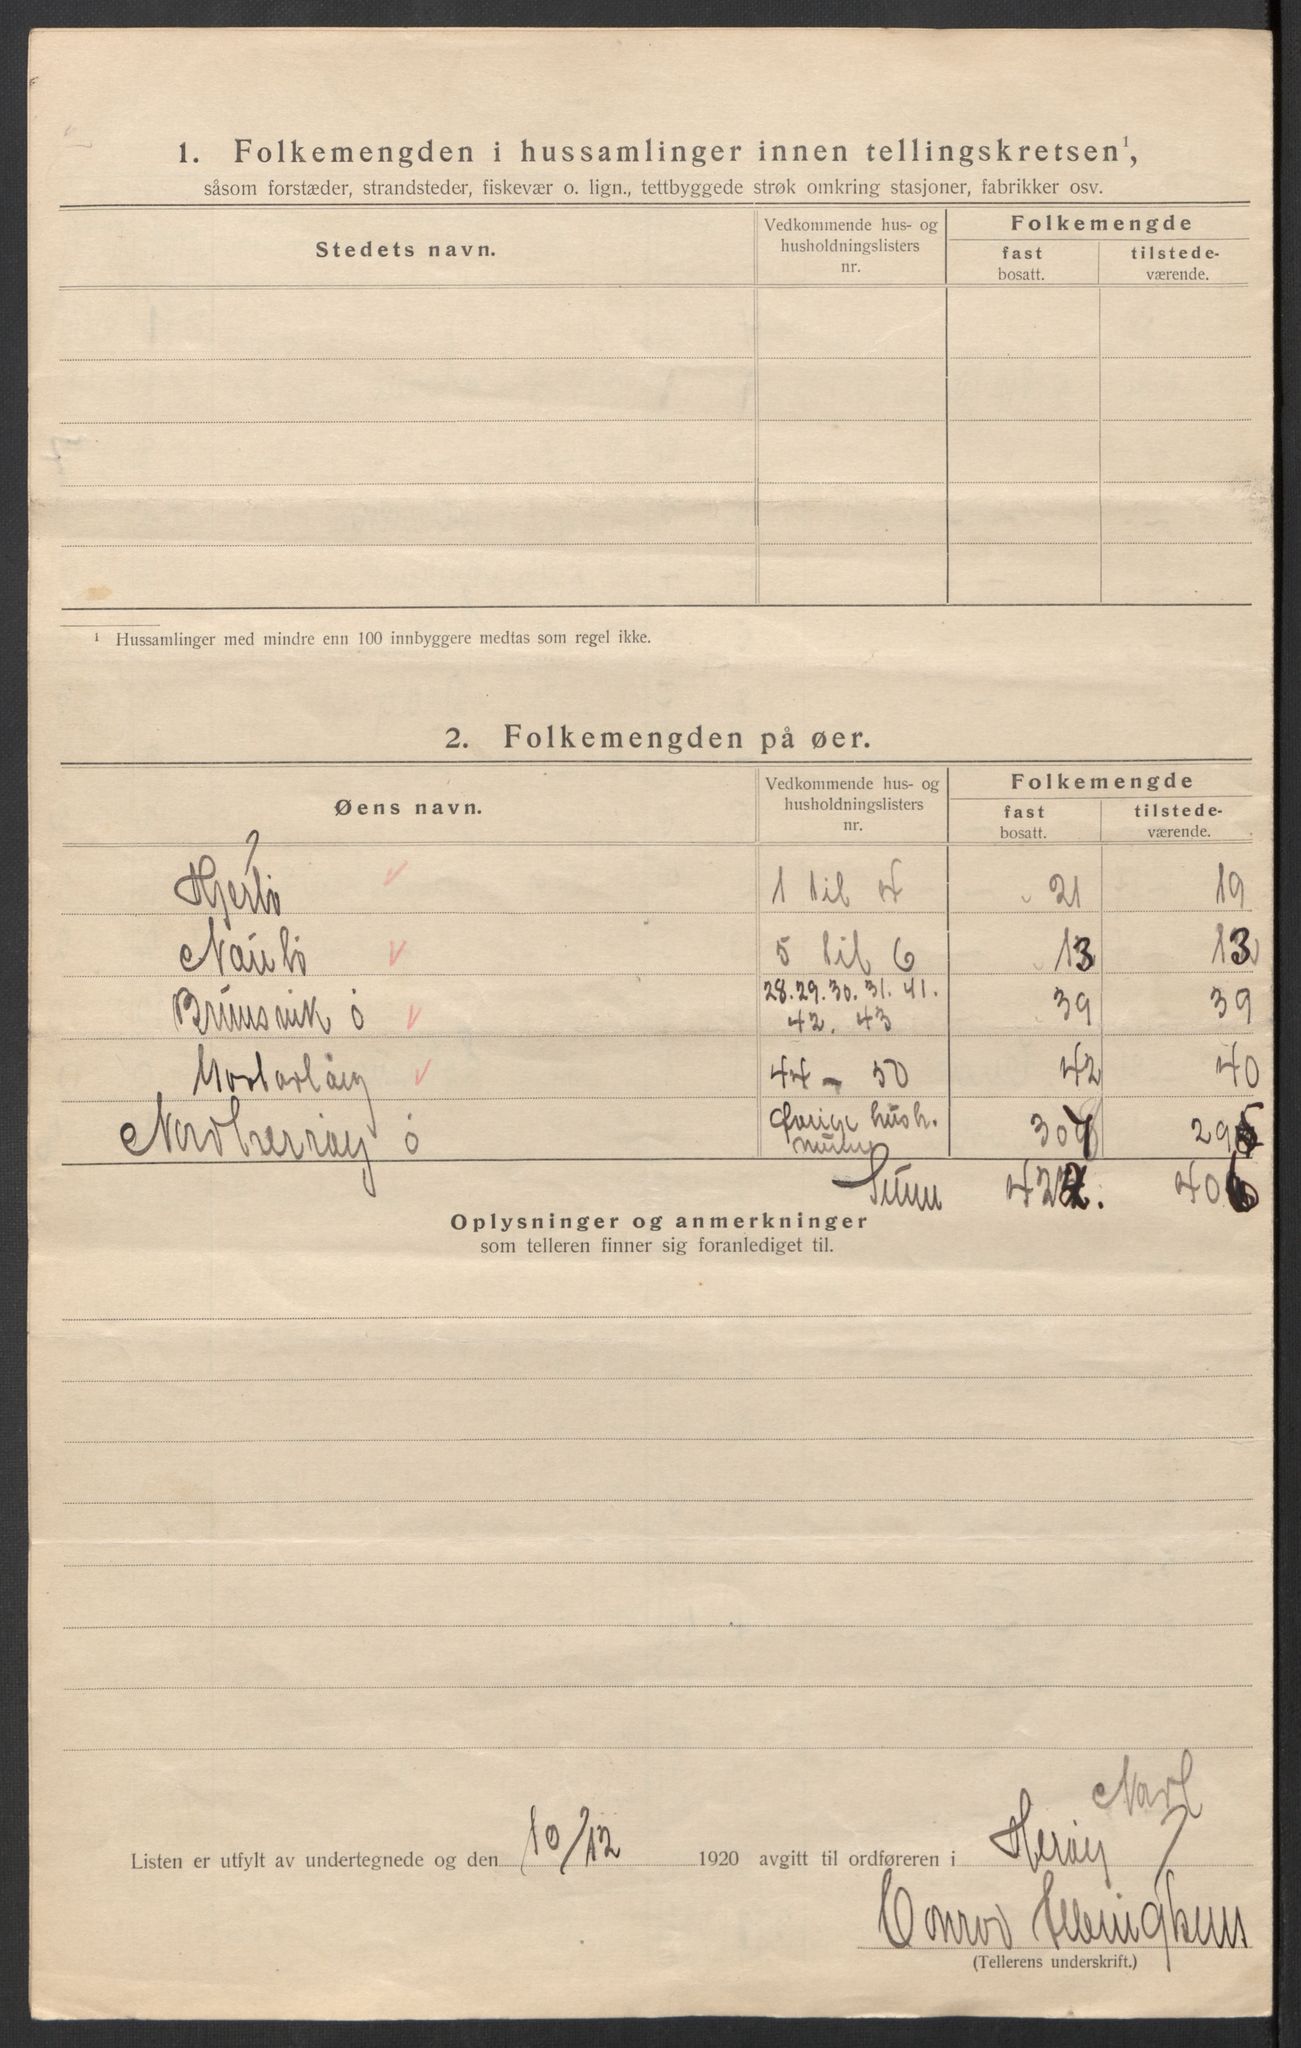 1. Folkemengden i hussamlinger innen tellingskretsen¹,
såsom forstæder, strandsteder, fiskevær o. lign., tettbyggede strøk omkring stasjoner, fabrikker osv.
Stedets navn.
Vedkommende hus- og
husholdningslisters
nr.
Folkemengde
fast
bosatt.
tilstede-
værende.
¹ Hussamlinger med mindre enn 100 innbyggere medtas som regel ikke.
2. Folkemengden på øer.
Øens navn.
Vedkommende hus- og
husholdningslisters
nr.
Folkemengde
fast
bosatt.
tilstede-
værende.
1 til 4 21 19
5 til 6 13 13
Brunsvik ö 28. 29. 30. 31. 41. 39 39
42. 43
44 - 50 42 40
Nordherröy ö Övrige hush. 307 295
Sum 422. 406
Oplysninger og anmerkninger
som telleren finner sig foranlediget til.
Nord
Listen er utfylt av undertegnede og den 10/12 1920 avgitt til ordføreren i Heröy
Conrad
(Tellerens underskrift.)